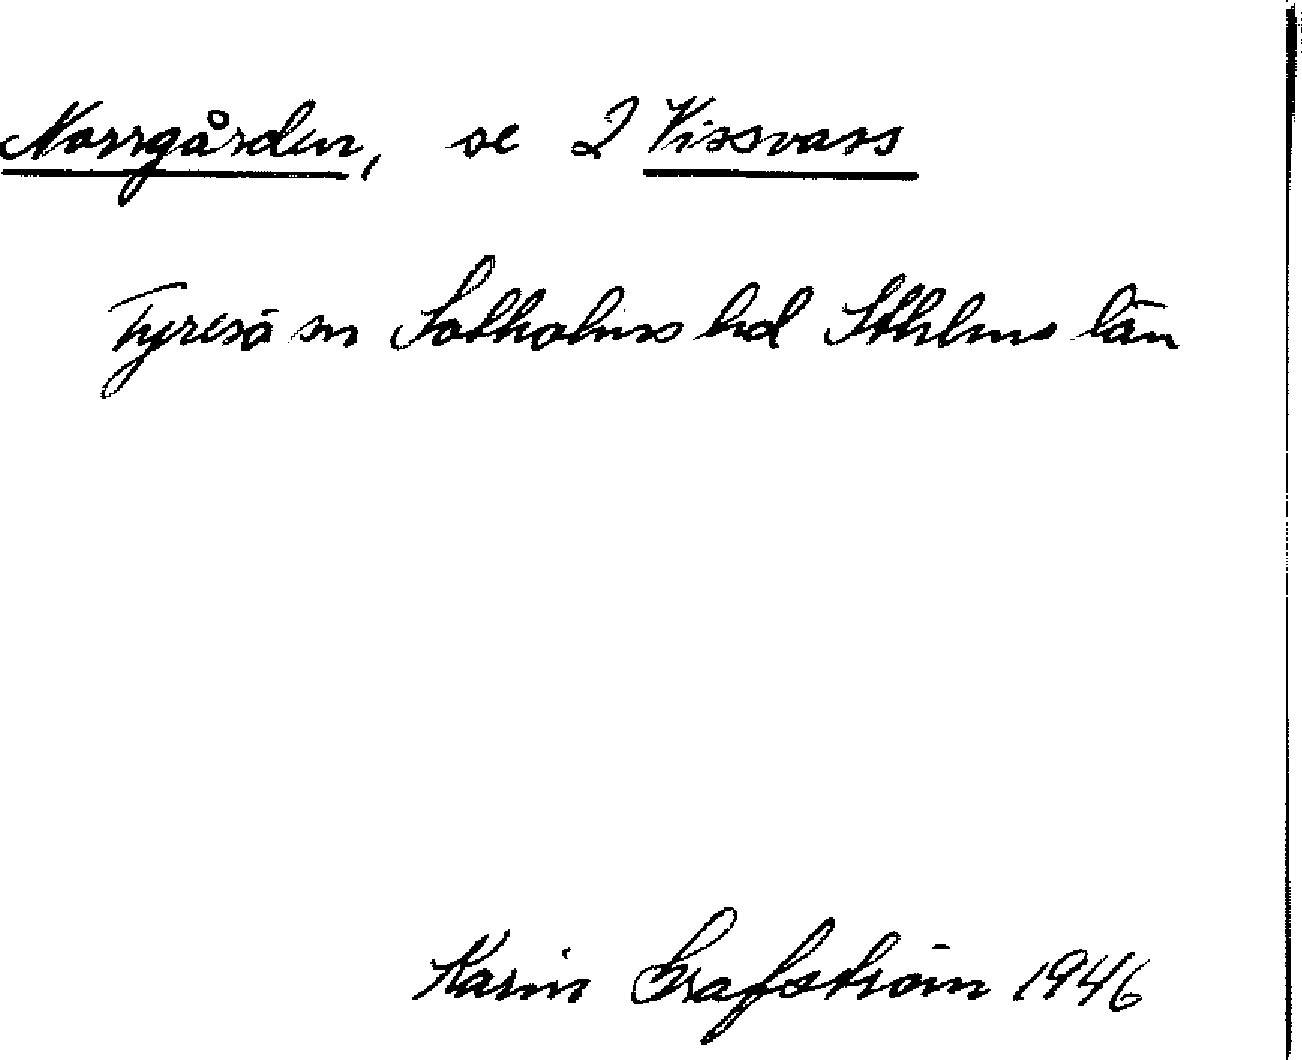 Norrgården, se 2 Vissvass
Tyresö sn Sotholms hd Sthlms län
Karin Grafström 1946